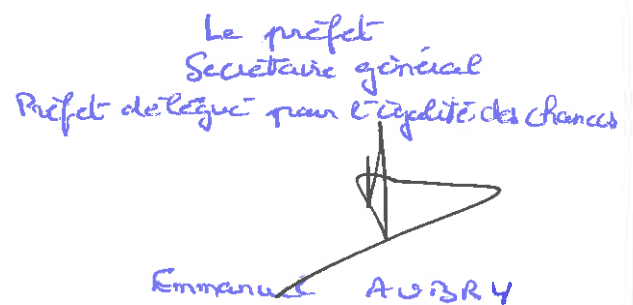 Le préfet
Secrétaire général
Préfet délégué pour l'égalité des chances
Emmanuel AUBRY